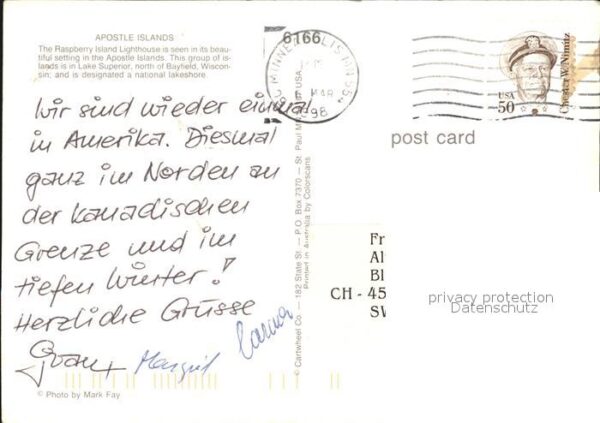 APOSTLE ISLANDS
The Raspberry Island Lighthouse is seen in its beau-
tiful setting in the Apostle Islands. This group of is-
lands is in Lake Superior, north of Bayfield, Wiscon-
sin; and is designated a national lakeshore.
Wir sind wieder einmal
in Amerika. Diesmal
ganz im Norden an
der kanadischen
Grenze und im
tiefen Winter!
Herzliche Grüsse
Margrit
© Photo by Mark Fay
© Cartwheel Co. — 182 State St. — P.O. Box 7370 — St. Paul
Printed in Australia by Colorscans
6166
MINNEAPOLIS MN 554
MAR
98
USA
50
Chester W. Nimitz
post card
Fr
Al
Bl
CH - 45
SV
privacy protection
Datenschutz